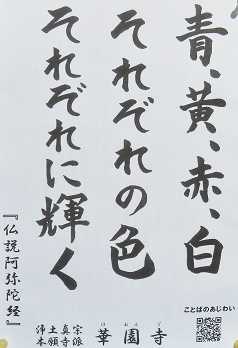 青、黄、赤、白
それぞれの色
それぞれに輝く
『仏説阿弥陀経』
ことばのあじわい
浄土真宗
本願寺派
華園寺